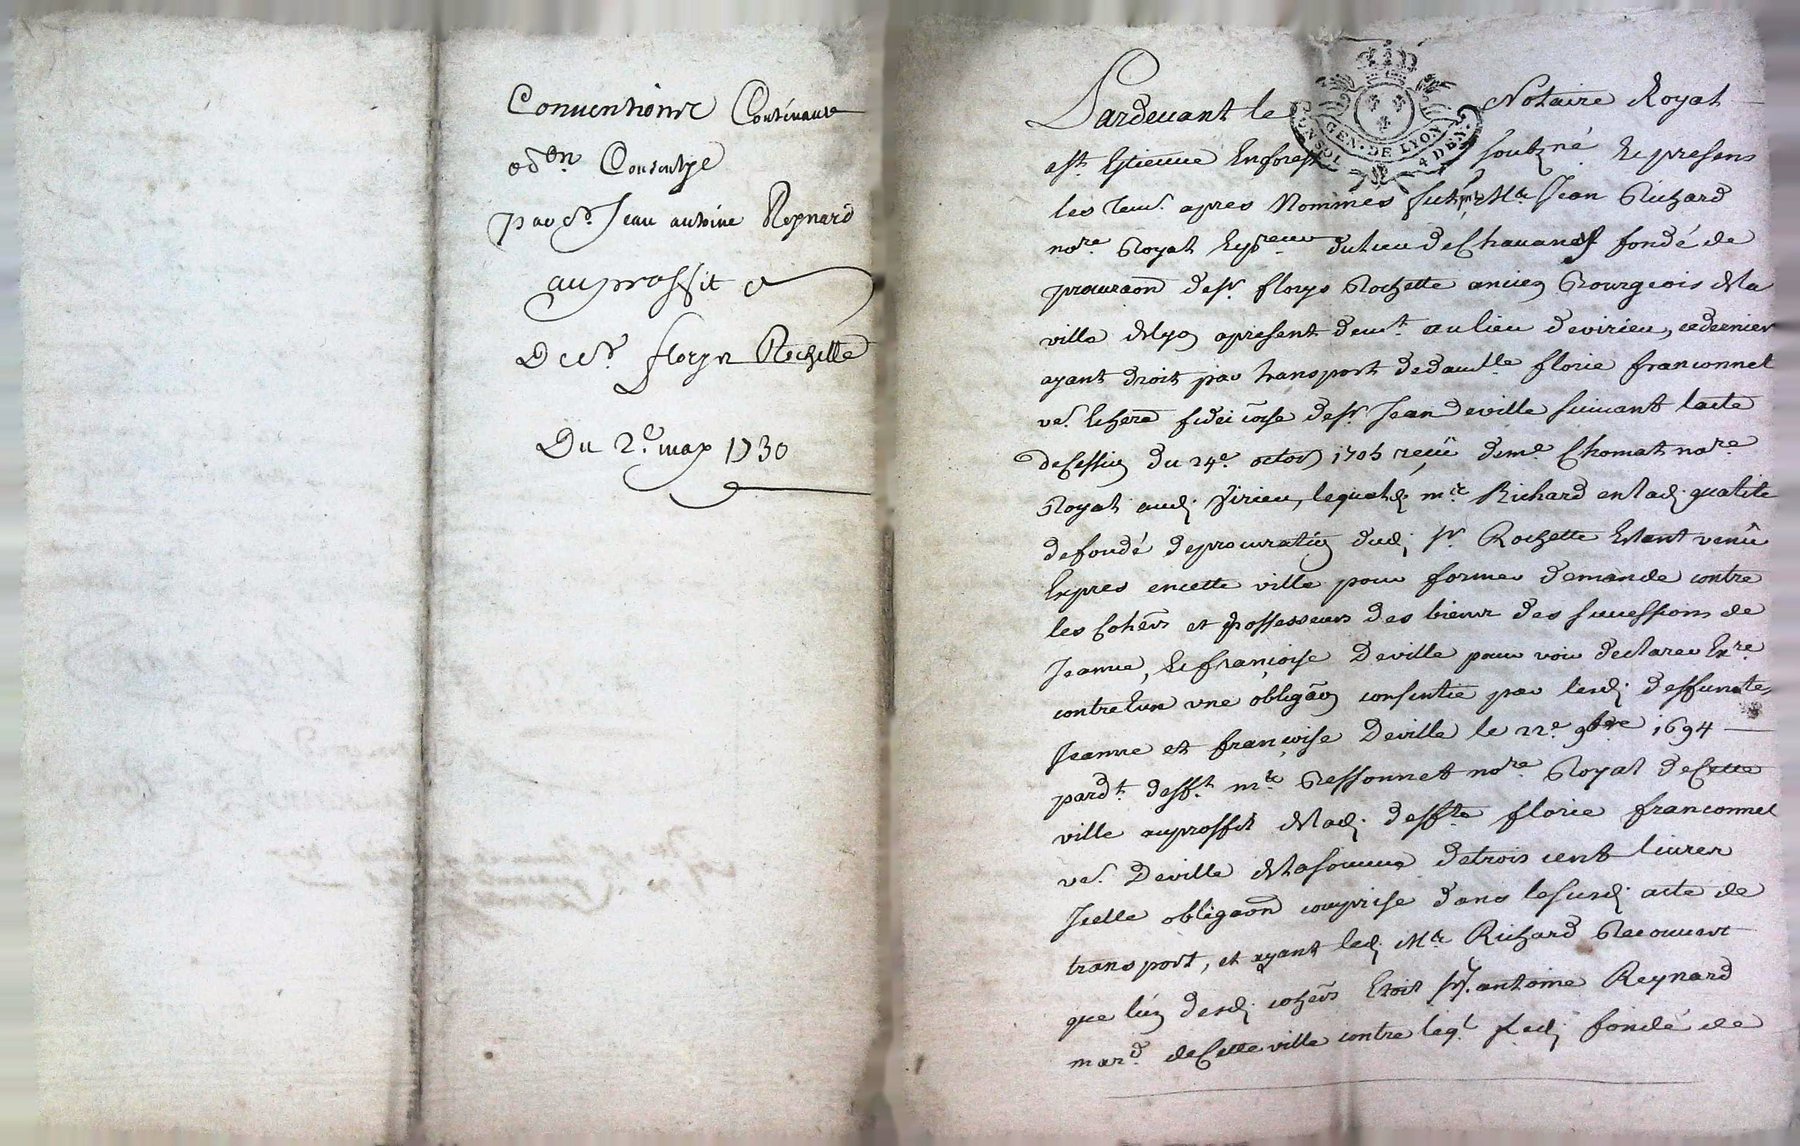 Conventions Contenant
odon Consentye
par Sr Jean antoine Reynard
au proffit
De Sr floryn Rochette
Du 2e may 1730
Pardevant le Notaire Royal
a St Estienne En forest soubzné Et presens
les Tem. apres Nommés fut Me Jean Richard
nore Royal Et preur du lieu de Chavanes fondé de
procuraōn de Sr florys Rochette ancien Bourgeois de la
ville de lyon apresent demt au lieu de virieu, ce dernier
ayant droit par transport de damlle florie franconnet
ve. Et here fidei coise de Sr Jean deville suivant lacte
de Cession du 24e octob 1705 reçû de me Chomat nore
Royal aud. Virieu, lequel d. mre Richard en lad. qualité
de fondé de procuration dud. Sr Rochette Estant venû
Expres en cette ville pour former demande contre
les Cohers et possesseurs des biens des successions de
Jeanne, Et françoise Deville pour voir declarer Exre
contre Eux une obligaōn consentie par lesd. deffuntes
Jeanne et françoise Deville le 22e 9bre 1694
pardt defft me Bessonnet nore Royal de Cette
ville au proffit de lad. deffte florie franconnet
ve. Deville de la somme de trois cent livres
Icelle obligaōn comprise dans le susd. acte de
transport, et ayant led. Me Richard Recouvert
que l'un desd. cohers Etoit Sr. antoine Reynard
mard de Cette ville contre leql led. fondé de
GEN. DE LYON
UN SOL 4 DEN.